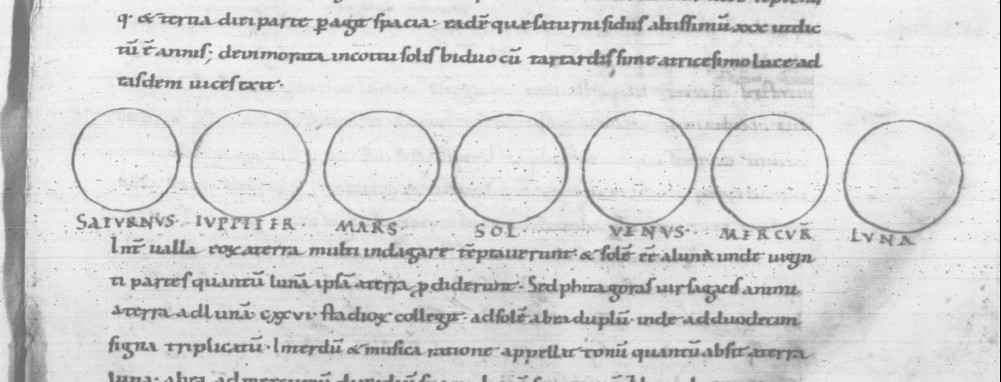 q· & terna diei parte pagit spacia· eadē que saturni sidus altissimū· xxx undic
tū ēē annis; devi morata in coitu solis biduo cū tartardissime a tricesimo luce ad
easdem uices exit·
SATVRNVS· IVPPITER· MARS· SOL· VENVS· MERCVR̄ LVNA
Int̄ualla eoꝝ a terra multi indagare tēptauerunt· & solē ēē a luna unde uigin
ti partes quantū lunā ipsā a terra ꝓdiderunt· Sed phitagoras uir sagacis animi
a terra ad lunā cxxvi stadioꝝ collegit· ad solē ab ea duplū· inde ad duodecim
signa triplicatū· Interdū & musica ratione appellat tonū quantū absit a terra
luna· ab ea ad mercuriū